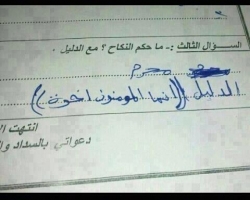 السؤال الثالث :ـ ما حكم النكاح ؟ مع الدليل .
محرم
الدليل ((انما المؤمنون اخوة))
انتهت
دعواتي بالسداد